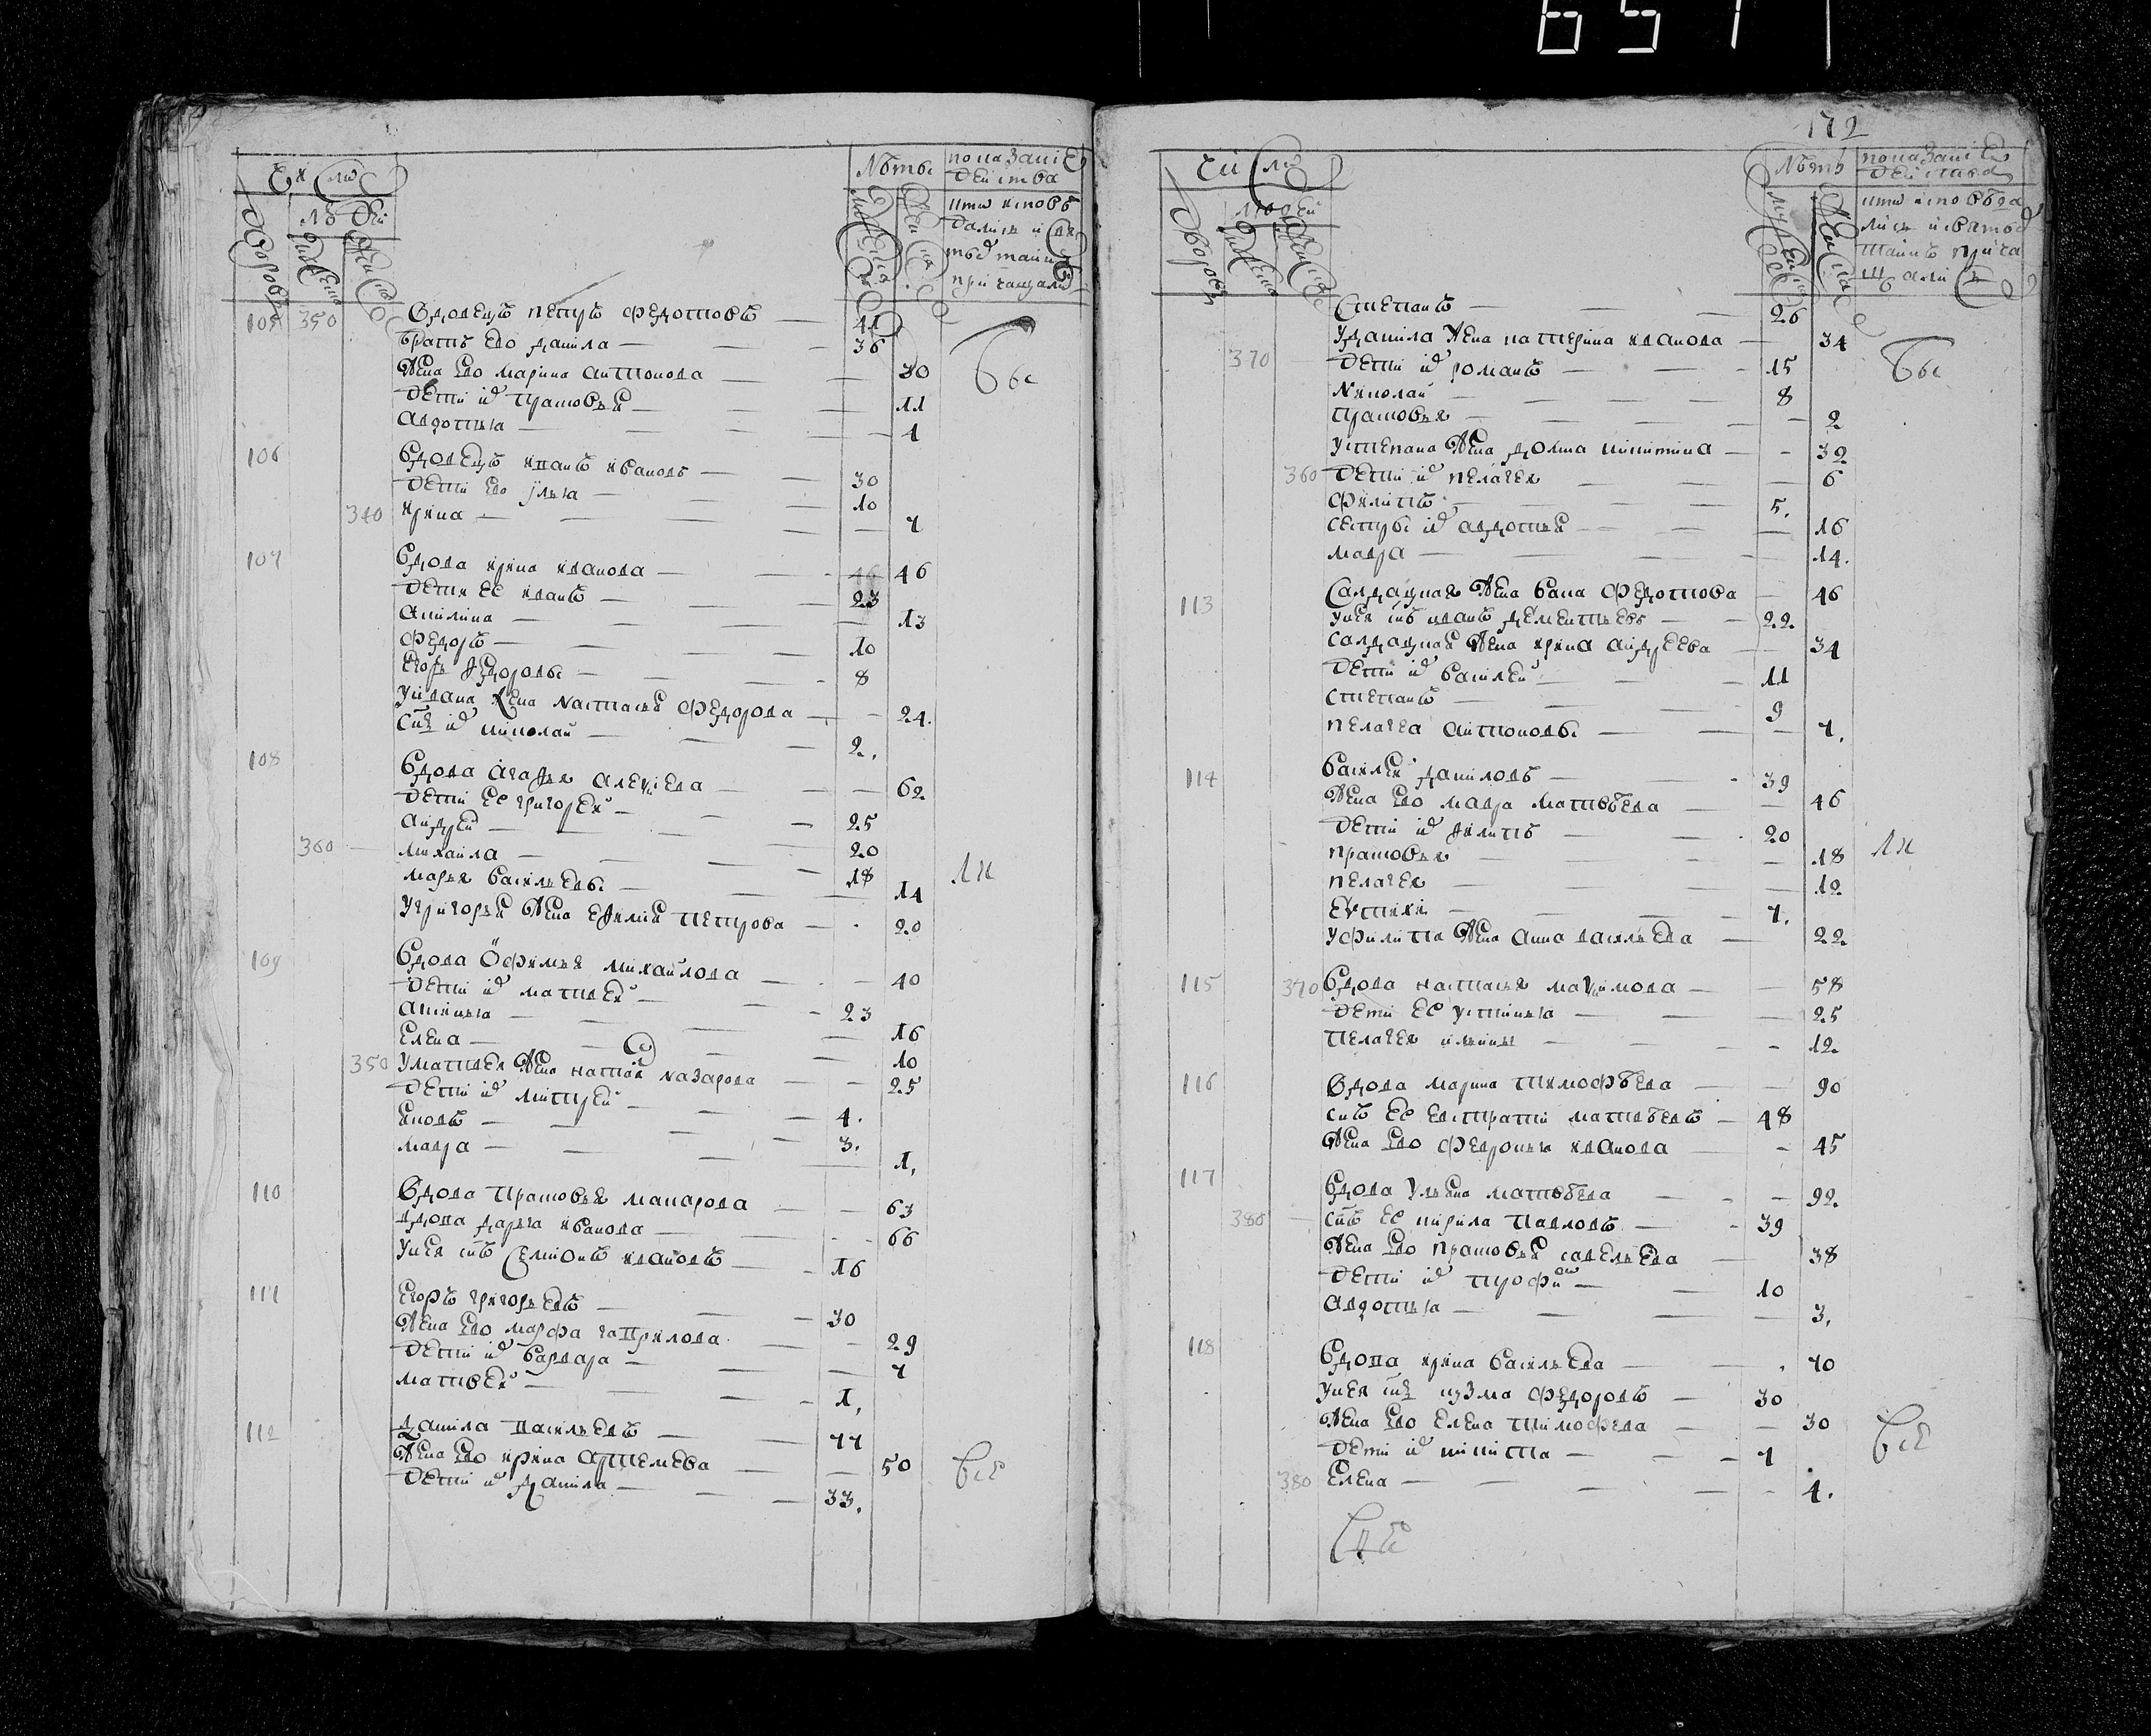 6571
Число
Лѣты
показание действа
людей
кто исповѣдались и святыхъ таинъ причащались
дворовъ
мужеска
женска
мужеска
женска
105 350 Вдовецъ петръ федотовъ — 41
братъ ево данила — 36
Жена ево марина антонова — 30
дети ихъ прасковья — 11
авдотья — 1
Бы
106 Вдовецъ иванъ ивановъ — 30
дети ево илья — 10
340 ирина — 7
107 Вдова ирина иванова — 46 46
дети ее иванъ — 23
акилина — 13
федоръ — 10
егоръ федоровы — 8
у ивана жена настасья федорова — 24.
снъ ихъ николай — 2.
108 Вдова агафья алексеева — 62
дети ее григорей —
андрей — 25
360 михайла — 20
марья васильевы — 18 14
у григорья жена ефимия петрова — 20
109 Вдова офимья михайлова — 40
дети ихъ матвей —
аксинья — 23
елена — 16
10
350 у матвея жена наталья назарова — 25
дети ихъ митрей —
яковъ — 4.
мавра — 3.
1.
110 Вдова прасковья макарова — 63
вдова дарья иванова — 66
у нея снъ семионъ ивановъ — 16
111 Егоръ григорьевъ — 30
Жена ево марфа гаврилова — 29
дети ихъ варвара — 7
матвей — 1.
112 данила васильевъ — 77
Жена ево ирина артемева — 50
дети ихъ данила — 33.
все
172
Число
Лѣтъ
показание действа
людей
кто исповѣдались и святыхъ таинъ причащались
дворовъ
мужеска
женска
мужеска
женска
Степанъ — 26
у данила жена катерина иванова — 34
370 дети ихъ романъ — 15
николай — 8
прасковья — 2
у степана жена домна никитина — 32
360 дети ихъ пелагея — 6
филипъ — 5.
сестры ихъ авдотья — 16
мавра — 14.
Бы
113 Салдацкая жена васа федотова — 46
у нея снъ иванъ дементьевъ — 22.
салдацкая жена ирина андреева — 34
дети ихъ василей — 11
степанъ — 9
пелагея антоновы — 7.
114 василей даниловъ — 39
Жена ево мавра матвѣева — 46
дети ихъ филипъ — 20
прасковья — 18
пелагея — 12
— 7.
у филипа жена анна васильева — 22
115 370 Вдова настасья максимова — 58
дети ее устинья — 25
пелагея — 12
116 Вдова марина тимофѣева — 90
снъ ее евстратий матвѣевъ — 48
Жена ево федосья иванова — 45
117 Вдова ульяна матвѣева — 92.
380 снъ ее кирила павловъ — 39
Жена ево прасковья савельева — 38
дети ихъ трофимъ — 10
авдотья — 3.
118 Вдова ирина васильева — 70
у нея снъ кузма федоровъ — 30
Жена ево елена тимофеева — 30
дети ихъ никита — 7
380 Елена — 4.
все